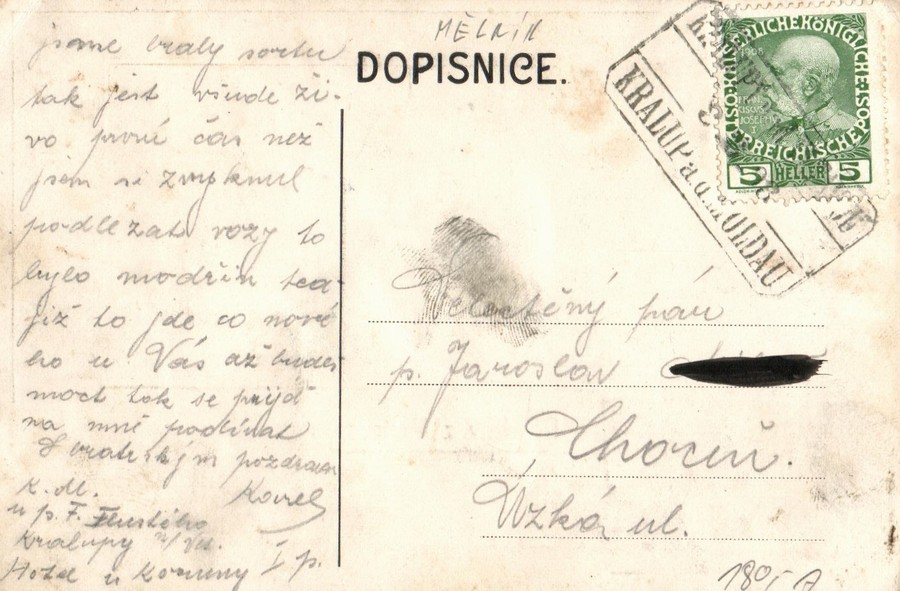 MĚLNÍK
DOPISNICE.
KAISERLICHE KÖNIGLICHE
1908
ÖSTERREICHISCHE POST
5 HELLER 5
KRALUP a.d. MOLDAU
jsme braly sortu
tak jest všude ži-
vo prvné čas než
jsem si zvyknul
podlézat vozy to
bylo modřin tea-
již to jde co nové
ho u Vás až budeš
moct tak se přijď
na mně podívat
S bratrským pozdravem
Karel
K. M.
u p. F.
Kralupy n/Vlt.
Hotel u Koruny I p.
Velectěný pán
p. Jaroslav
Choceň.
Úzká ul.